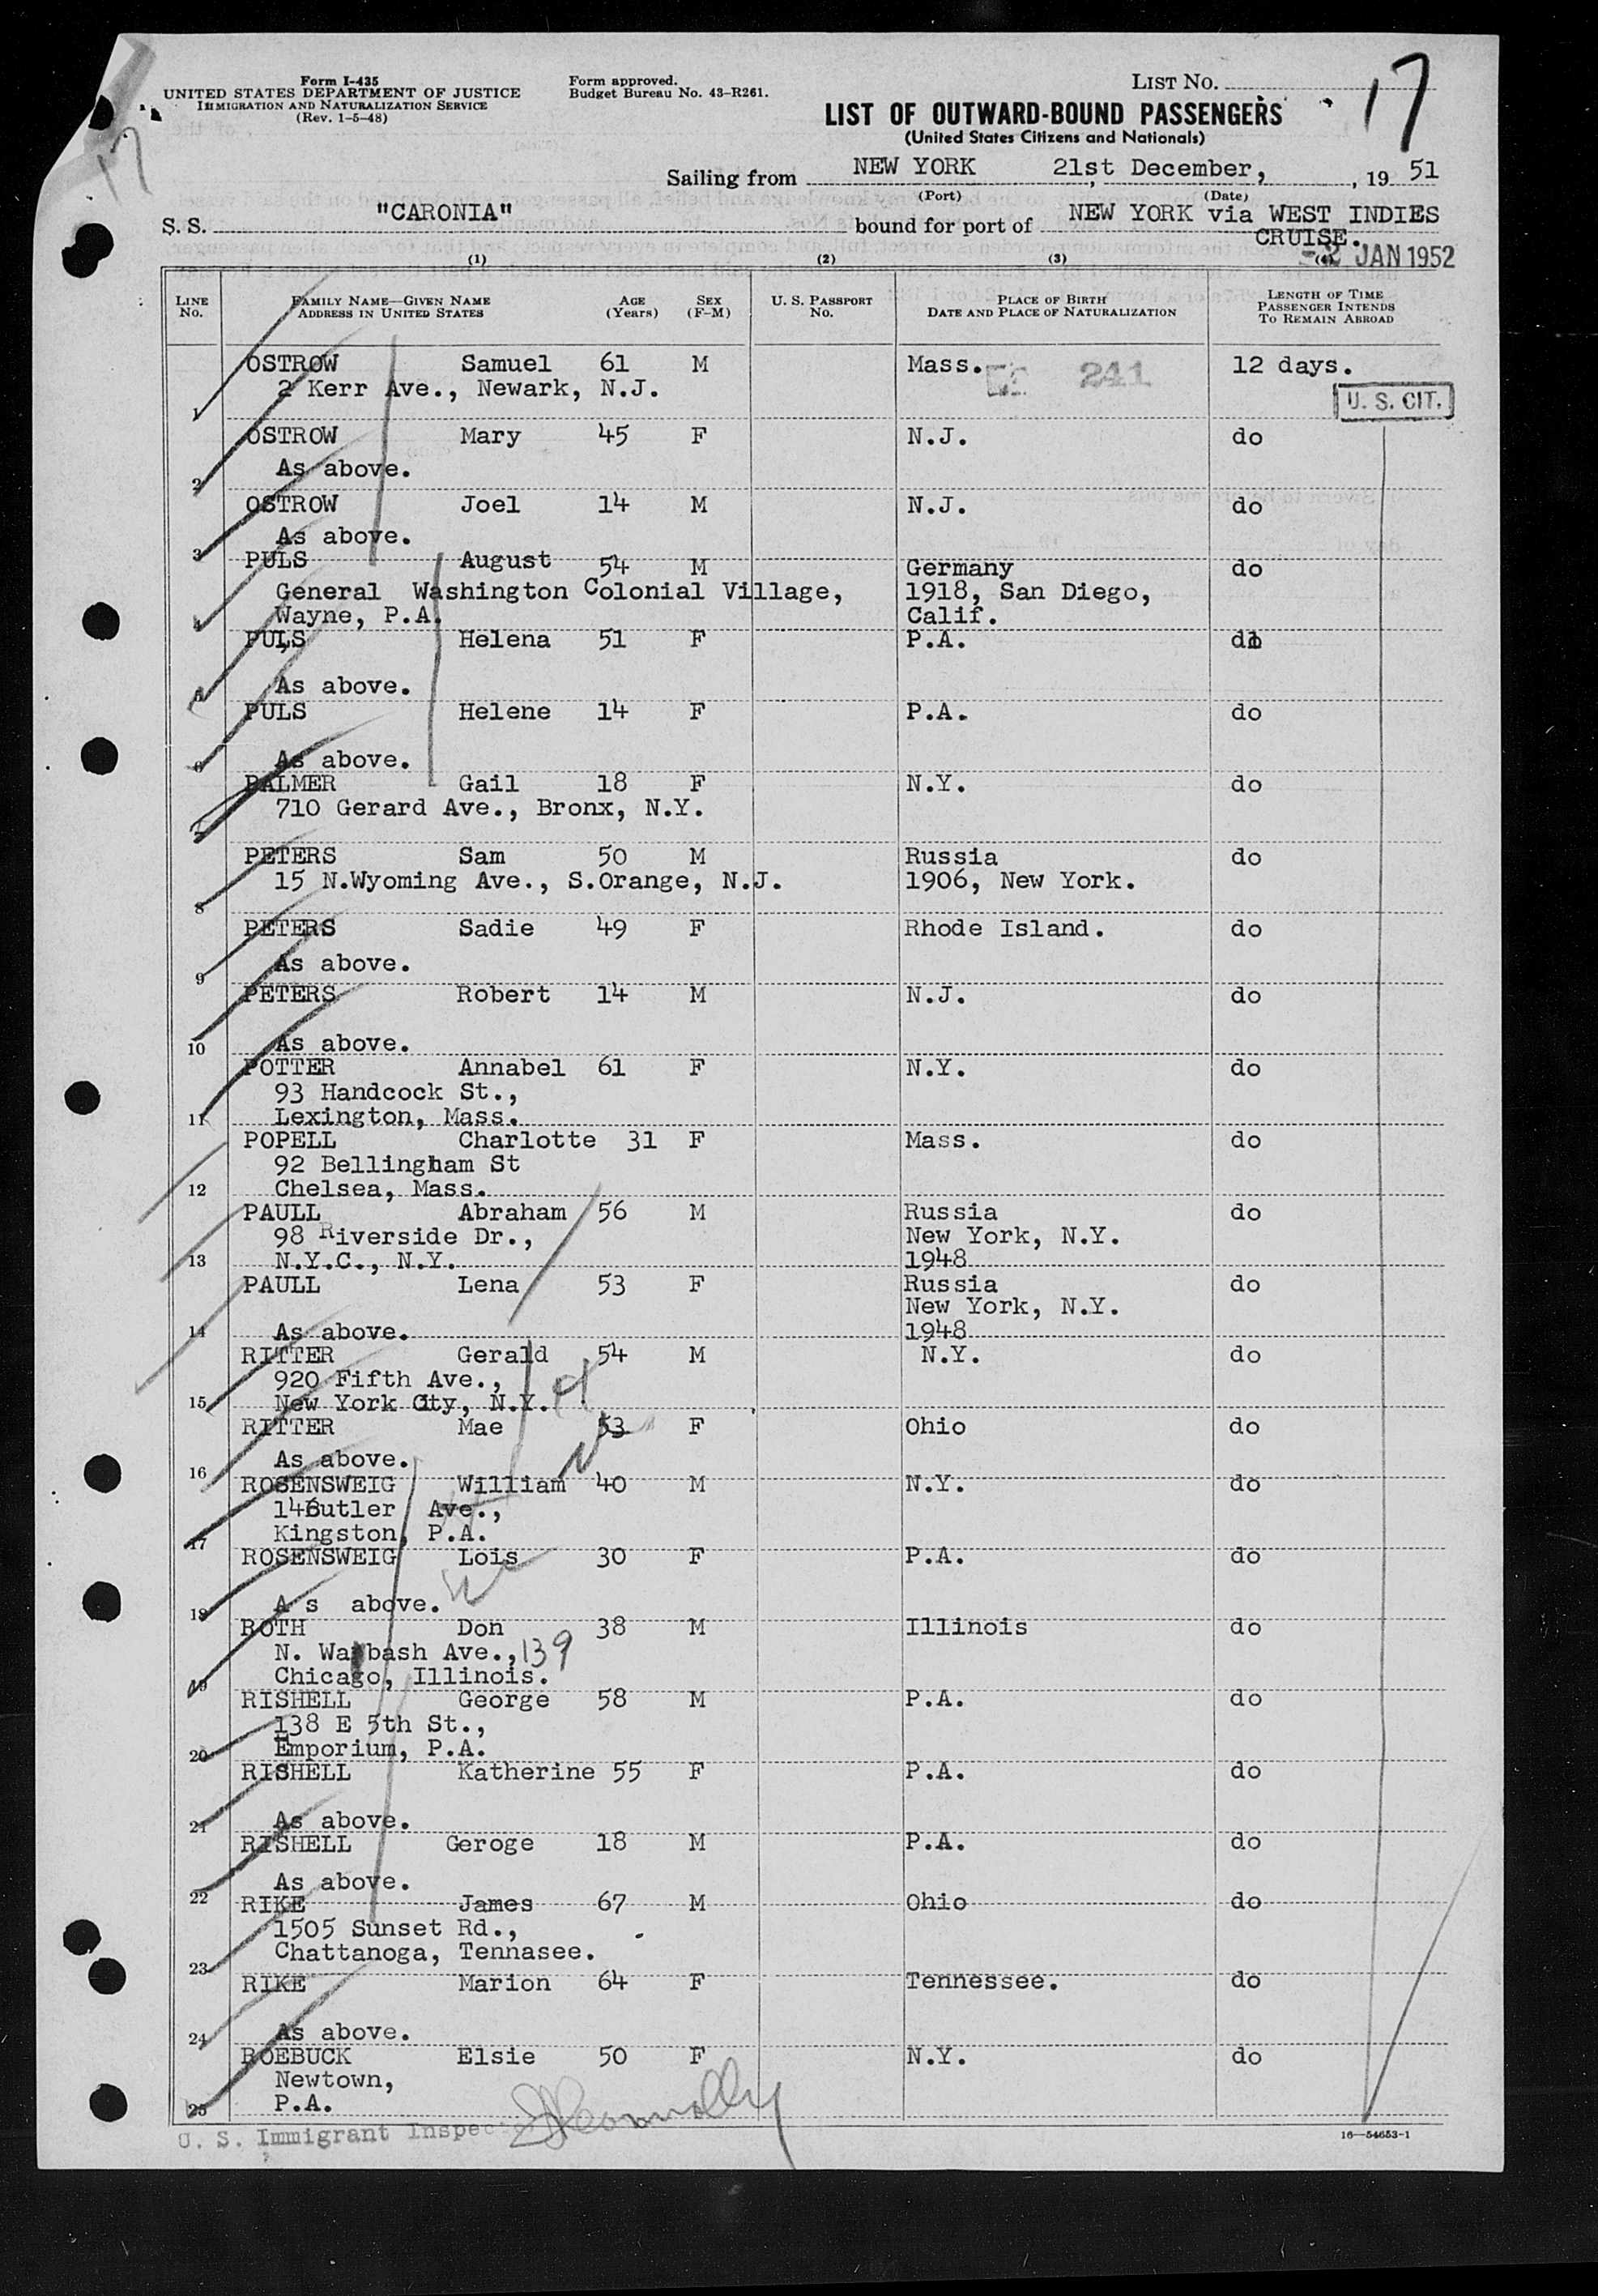 Form I-435
UNITED STATES DEPARTMENT OF JUSTICE
IMMIGRATION AND NATURALIZATION SERVICE
(Rev. 1-5-48)
Form approved.
Budget Bureau No. 43-R261.
LIST NO. 17
LIST OF OUTWARD-BOUND PASSENGERS
(United States Citizens and Nationals)
17
Sailing from NEW YORK 21st December, , 19 51
(Port) (Date)
S. S. "CARONIA" bound for port of NEW YORK via WEST INDIES
CRUISE.
-2 JAN 1952
(1) (2) (3) (4)
LINE No. FAMILY NAME—GIVEN NAME ADDRESS IN UNITED STATES AGE (Years) SEX (F-M) U. S. PASSPORT No. PLACE OF BIRTH DATE AND PLACE OF NATURALIZATION LENGTH OF TIME PASSENGER INTENDS TO REMAIN ABROAD
OSTROW Samuel 61 M Mass. 241 12 days.
2 Kerr Ave., Newark, N.J. U. S. CIT.
1
OSTROW Mary 45 F N.J. do
As above.
2
OSTROW Joel 14 M N.J. do
As above.
3
PULS August 54 M Germany do
General Washington Colonial Village, 1918, San Diego,
4 Wayne, P.A. Calif.
PULS Helena 51 F P.A. do
5 As above.
PULS Helene 14 F P.A. do
6 As above.
PALMER Gail 18 F N.Y. do
710 Gerard Ave., Bronx, N.Y.
7
PETERS Sam 50 M Russia do
15 N.Wyoming Ave., S.Orange, N.J. 1906, New York.
8
PETERS Sadie 49 F Rhode Island. do
As above.
9
PETERS Robert 14 M N.J. do
10 As above.
POTTER Annabel 61 F N.Y. do
93 Handcock St.,
11 Lexington, Mass.
POPELL Charlotte 31 F Mass. do
92 Bellingham St
12 Chelsea, Mass.
PAULL Abraham 56 M Russia do
98 Riverside Dr., New York, N.Y.
13 N.Y.C., N.Y. 1948
PAULL Lena 53 F Russia do
New York, N.Y.
14 As above. 1948
RITTER Gerald 54 M N.Y. do
920 Fifth Ave.,
15 New York City, N.Y.
RITTER Mae 53 F Ohio do
16 As above.
ROSENSWEIG William 40 M N.Y. do
146 Butler Ave.,
17 Kingston, P.A.
ROSENSWEIG Lois 30 F P.A. do
18 A s above.
ROTH Don 38 M Illinois do
N. Wabash Ave., 139
19 Chicago, Illinois.
RISHELL George 58 M P.A. do
138 E 5th St.,
20 Emporium, P.A.
RISHELL Katherine 55 F P.A. do
21 As above.
RISHELL Geroge 18 M P.A. do
22 As above.
RIKE James 67 M Ohio do
1505 Sunset Rd.,
23 Chattanoga, Tennasee.
RIKE Marion 64 F Tennessee. do
24 As above.
ROEBUCK Elsie 50 F N.Y. do
Newtown,
25 P.A.
U. S. Immigrant Inspector Connolly
16—54653-1